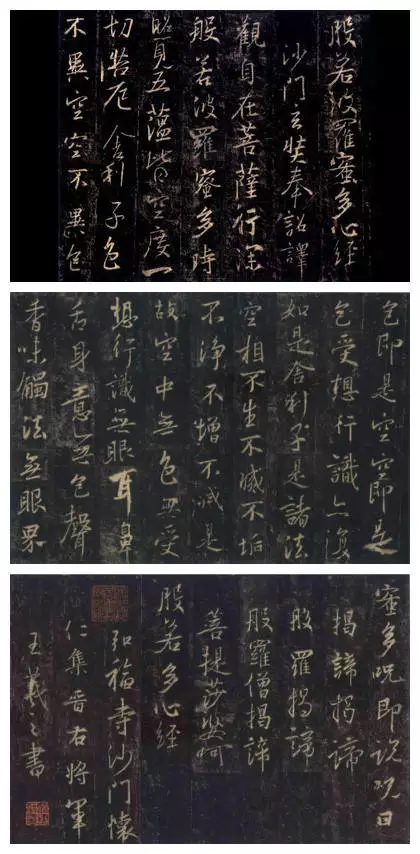 般若波羅蜜多心經
沙門玄奘奉詔譯
觀自在菩薩行深
般若波羅蜜多時
照見五蘊皆空度一
切厄舍利子色
不異空空不異色
色即是空空即是
色受想行識亦復
如是舍利子是諸法
空相不生不滅不垢
不淨不增不減是
故空中無色無受
想行識無眼耳鼻
舌身意無色聲
香味觸法無眼界
蜜多呪即說呪曰
揭諦揭諦
般羅揭諦
般羅僧揭諦
菩提莎婆呵
般若多心經
弘福寺沙門懷
仁集晉右將軍
王羲之書